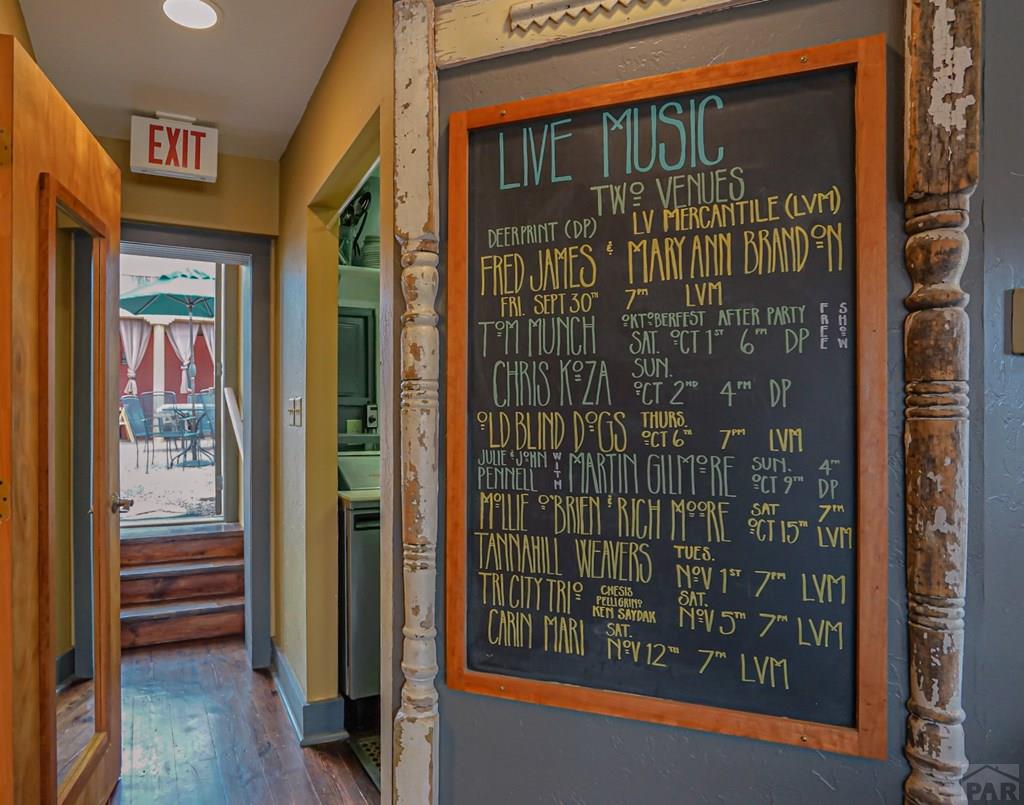 EXIT
LIVE MUSIC
TWO VENUES
DEERPRINT (DP) LV MERCANTILE (LVM)
FRED JAMES & MARY ANN BRANDON
FRI. SEPT 30TH 7PM LVM
TOM MUNCH OKTOBERFEST AFTER PARTY FREE SHOW
SAT. OCT 1ST 6PM DP
CHRIS KOZA SUN. OCT 2ND 4PM DP
OLD BLIND DOGS THURS. OCT 6TH 7PM LVM
JULIE & JOHN PENNELL WITH MARTIN GILMORE SUN. OCT 9TH 4PM DP
MOLLIE O'BRIEN & RICH MOORE SAT OCT 15TH 7PM LVM
TANNAHILL WEAVERS TUES. NOV 1ST 7PM LVM
TRI CITY TRIO CHESIS PELLIGRINO KEN SAYDAK SAT. NOV 5TH 7PM LVM
CARIN MARI SAT. NOV 12TH 7PM LVM
PAR